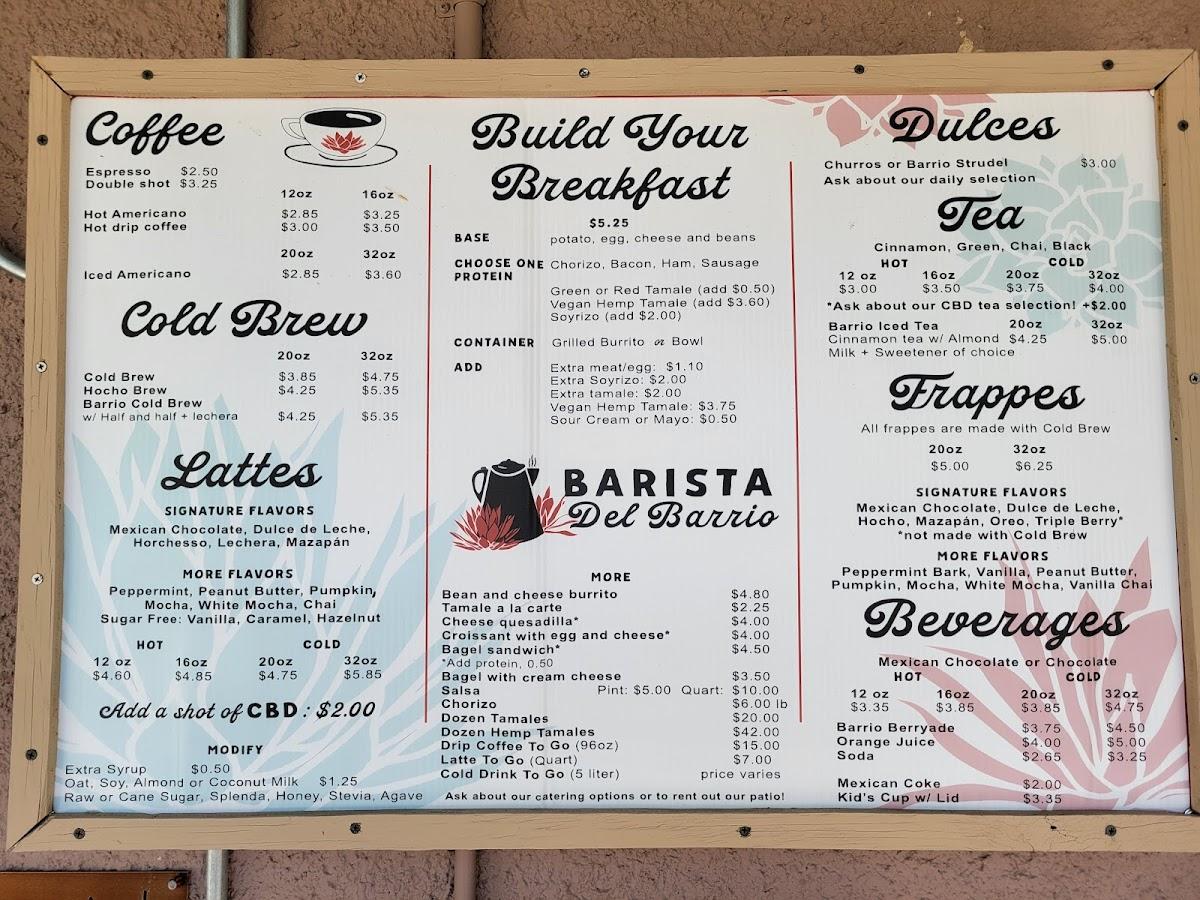 Coffee
Espresso $2.50
Double shot $3.25
12oz 16oz
Hot Americano $2.85 $3.25
Hot drip coffee $3.00 $3.50
20oz 32oz
Iced Americano $2.85 $3.60
Cold Brew
20oz 32oz
Cold Brew $3.85 $4.75
Hocho Brew $4.25 $5.35
Barrio Cold Brew
w/ Half and half + lechera $4.25 $5.35
Lattes
SIGNATURE FLAVORS
Mexican Chocolate, Dulce de Leche,
Horchesso, Lechera, Mazapán
MORE FLAVORS
Peppermint, Peanut Butter, Pumpkin,
Mocha, White Mocha, Chai
Sugar Free: Vanilla, Caramel, Hazelnut
HOT COLD
12 oz 16oz 20oz 32oz
$4.60 $4.85 $4.75 $5.85
Add a shot of CBD: $2.00
MODIFY
Extra Syrup $0.50
Oat, Soy, Almond or Coconut Milk $1.25
Raw or Cane Sugar, Splenda, Honey, Stevia, Agave
Build Your
Breakfast
$5.25
BASE potato, egg, cheese and beans
CHOOSE ONE Chorizo, Bacon, Ham, Sausage
PROTEIN
Green or Red Tamale (add $0.50)
Vegan Hemp Tamale (add $3.60)
Soyrizo (add $2.00)
CONTAINER Grilled Burrito or Bowl
ADD Extra meat/egg: $1.10
Extra Soyrizo: $2.00
Extra tamale: $2.00
Vegan Hemp Tamale: $3.75
Sour Cream or Mayo: $0.50
BARISTA
Del Barrio
MORE
Bean and cheese burrito $4.80
Tamale a la carte $2.25
Cheese quesadilla* $4.00
Croissant with egg and cheese* $4.00
Bagel sandwich* $4.50
*Add protein, 0.50
Bagel with cream cheese $3.50
Salsa Pint: $5.00 Quart: $10.00
Chorizo $6.00 lb
Dozen Tamales $20.00
Dozen Hemp Tamales $42.00
Drip Coffee To Go (96oz) $15.00
Latte To Go (Quart) $7.00
Cold Drink To Go (5 liter) price varies
Ask about our catering options or to rent out our patio!
Dulces
Churros or Barrio Strudel $3.00
Ask about our daily selection
Tea
Cinnamon, Green, Chai, Black
HOT COLD
12 oz 16oz 20oz 32oz
$3.00 $3.50 $3.75 $4.00
*Ask about our CBD tea selection! +$2.00
Barrio Iced Tea 20oz 32oz
Cinnamon tea w/ Almond $4.25 $5.00
Milk + Sweetener of choice
Frappes
All frappes are made with Cold Brew
20oz 32oz
$5.00 $6.25
SIGNATURE FLAVORS
Mexican Chocolate, Dulce de Leche,
Hocho, Mazapán, Oreo, Triple Berry*
*not made with Cold Brew
MORE FLAVORS
Peppermint Bark, Vanilla, Peanut Butter,
Pumpkin, Mocha, White Mocha, Vanilla Chai
Beverages
Mexican Chocolate or Chocolate
HOT COLD
12 oz 16oz 20oz 32oz
$3.35 $3.85 $3.85 $4.75
Barrio Berryade $3.75 $4.50
Orange Juice $4.00 $5.00
Soda $2.65 $3.25
Mexican Coke $2.00
Kid's Cup w/ Lid $3.35